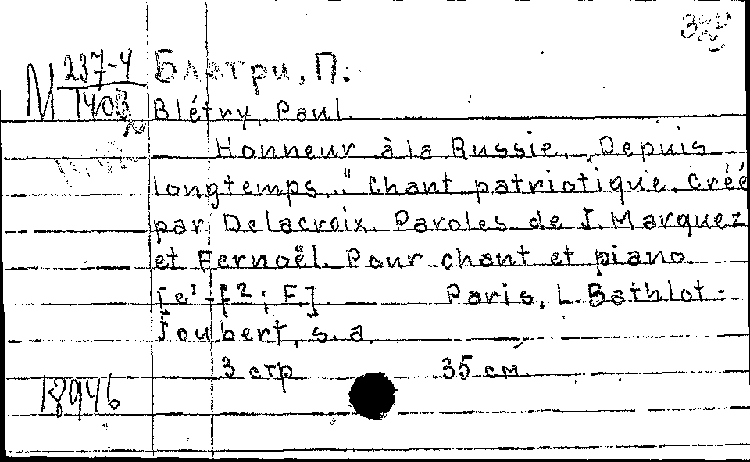 М 237-4
1403
Блетри, П.
Blétry, Paul.
Honneur à la Russie. "Depuis
longtemps." Chant patriotique. Créé
par Delacroix. Paroles de J. Marquez
et Fernoël. Pour chant et piano.
[e¹-f²; F.] Paris, L. Bathlot-
Joubert, s.a.
3 стр 35 см.
18946